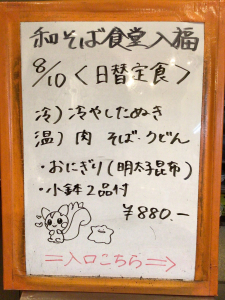 和そば食堂入福
8/10〈日替定食〉
冷)冷やしたぬき
温)肉 そば・うどん
・おにぎり(明太子昆布)
・小鉢2品付
¥880.-
⇒入口こちら⇒